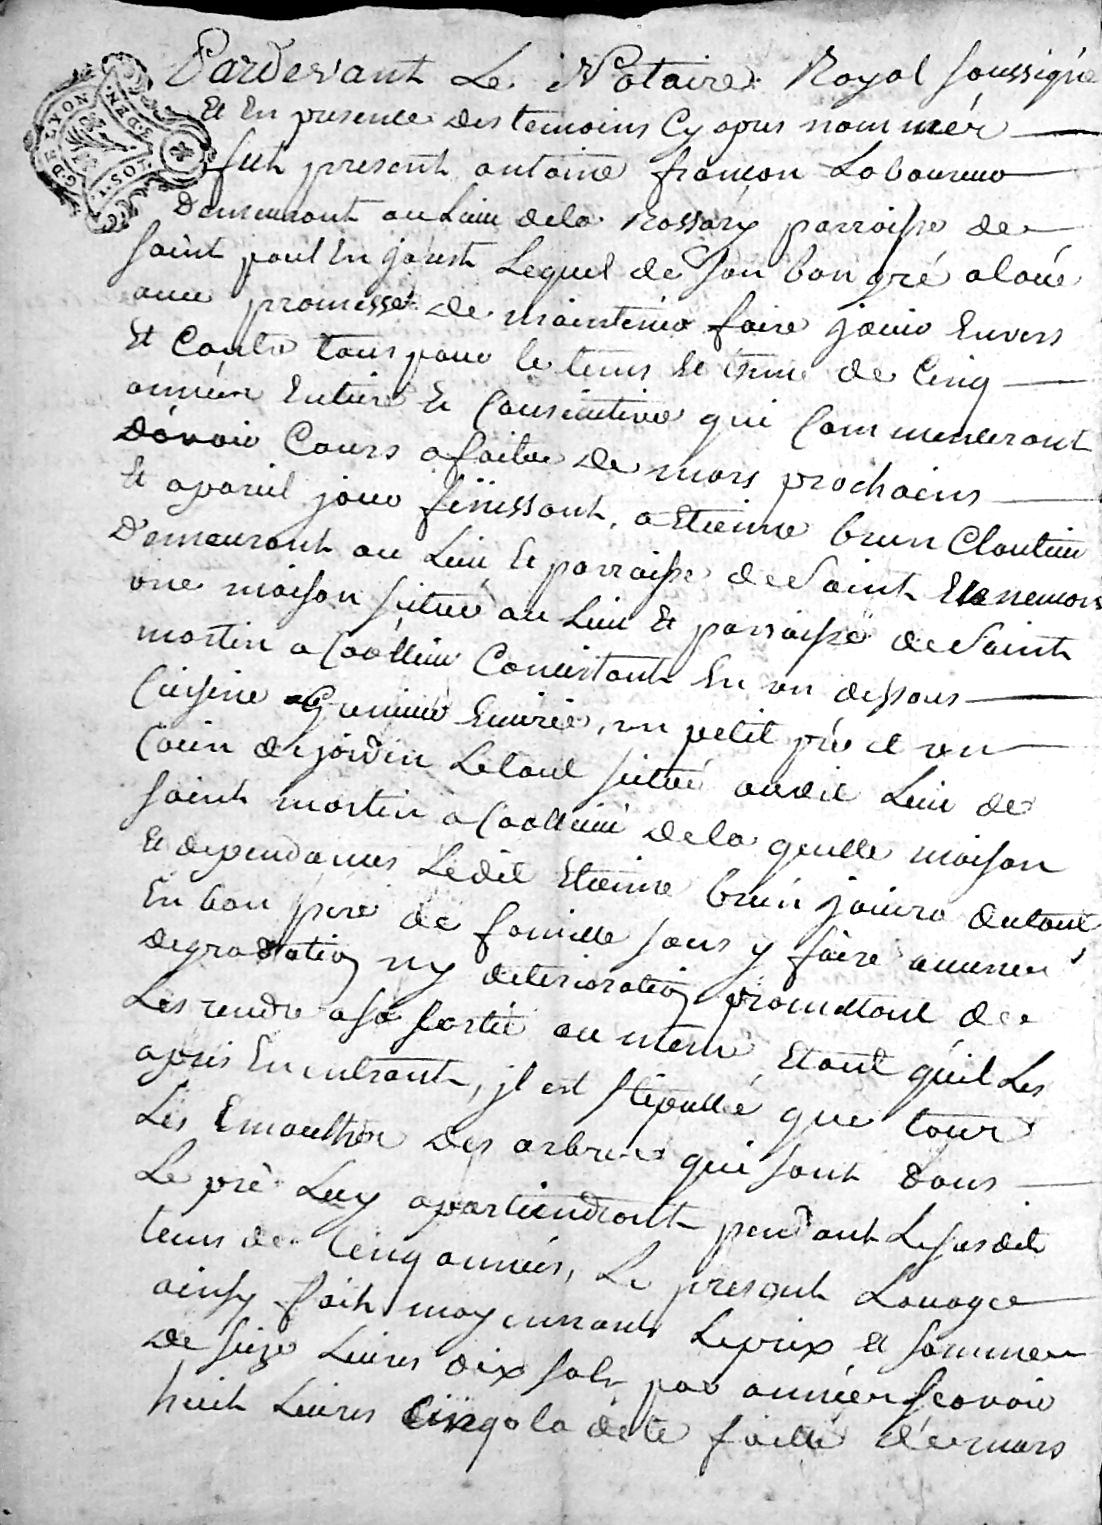 Pardevant Le Notaire Royal soussigné
Et En presence des temoins Cy apres nommés
fut present antoine françon Laboureur
Demeurant au Lieu dela Rossary parroisse de
saint paul En jarest Lequel de son bon gré a loué
avec promesse de maintenir faire jouir Envers
Et Contre tous pour le tems Et terme de Cinq
années Entieres Et Consecutives qui Commenceront
d'avoir Cours a faite de mars prochains
Et a pareil jour finissant, a Etienne brun Cloutier
Demeurant au Lieu Et parroisse de Saint
une maison situé au Lieu Et parroisse de Saint
martin a Coallieu Consistant En un dessous
Cuisine Grenier Ecurie, un petit pré et un
Coin de jardin Le tout situé audit Lieu de
saint martin a Coallieu de la quelle maison
Et dependances Ledit Etienne brun jouira du tout
En bon pere de famille sans y faire aucune
degradation ny deterioration promettant de
Les rendre a sa sortie au meme Etant qu'il Les
apris En entrant, il est stipullé que tout
Les Emouttes des arbres qui sont dans
Le pré Luy apartiendront pendant Le susdit
tems de Cinq années, Le present Louage
ainsy fait moyennant Le prix Et somme
de seize Livres dix sols par année scavoir
huit Livres Cinq a la dete faitte de mars
GDE LYON